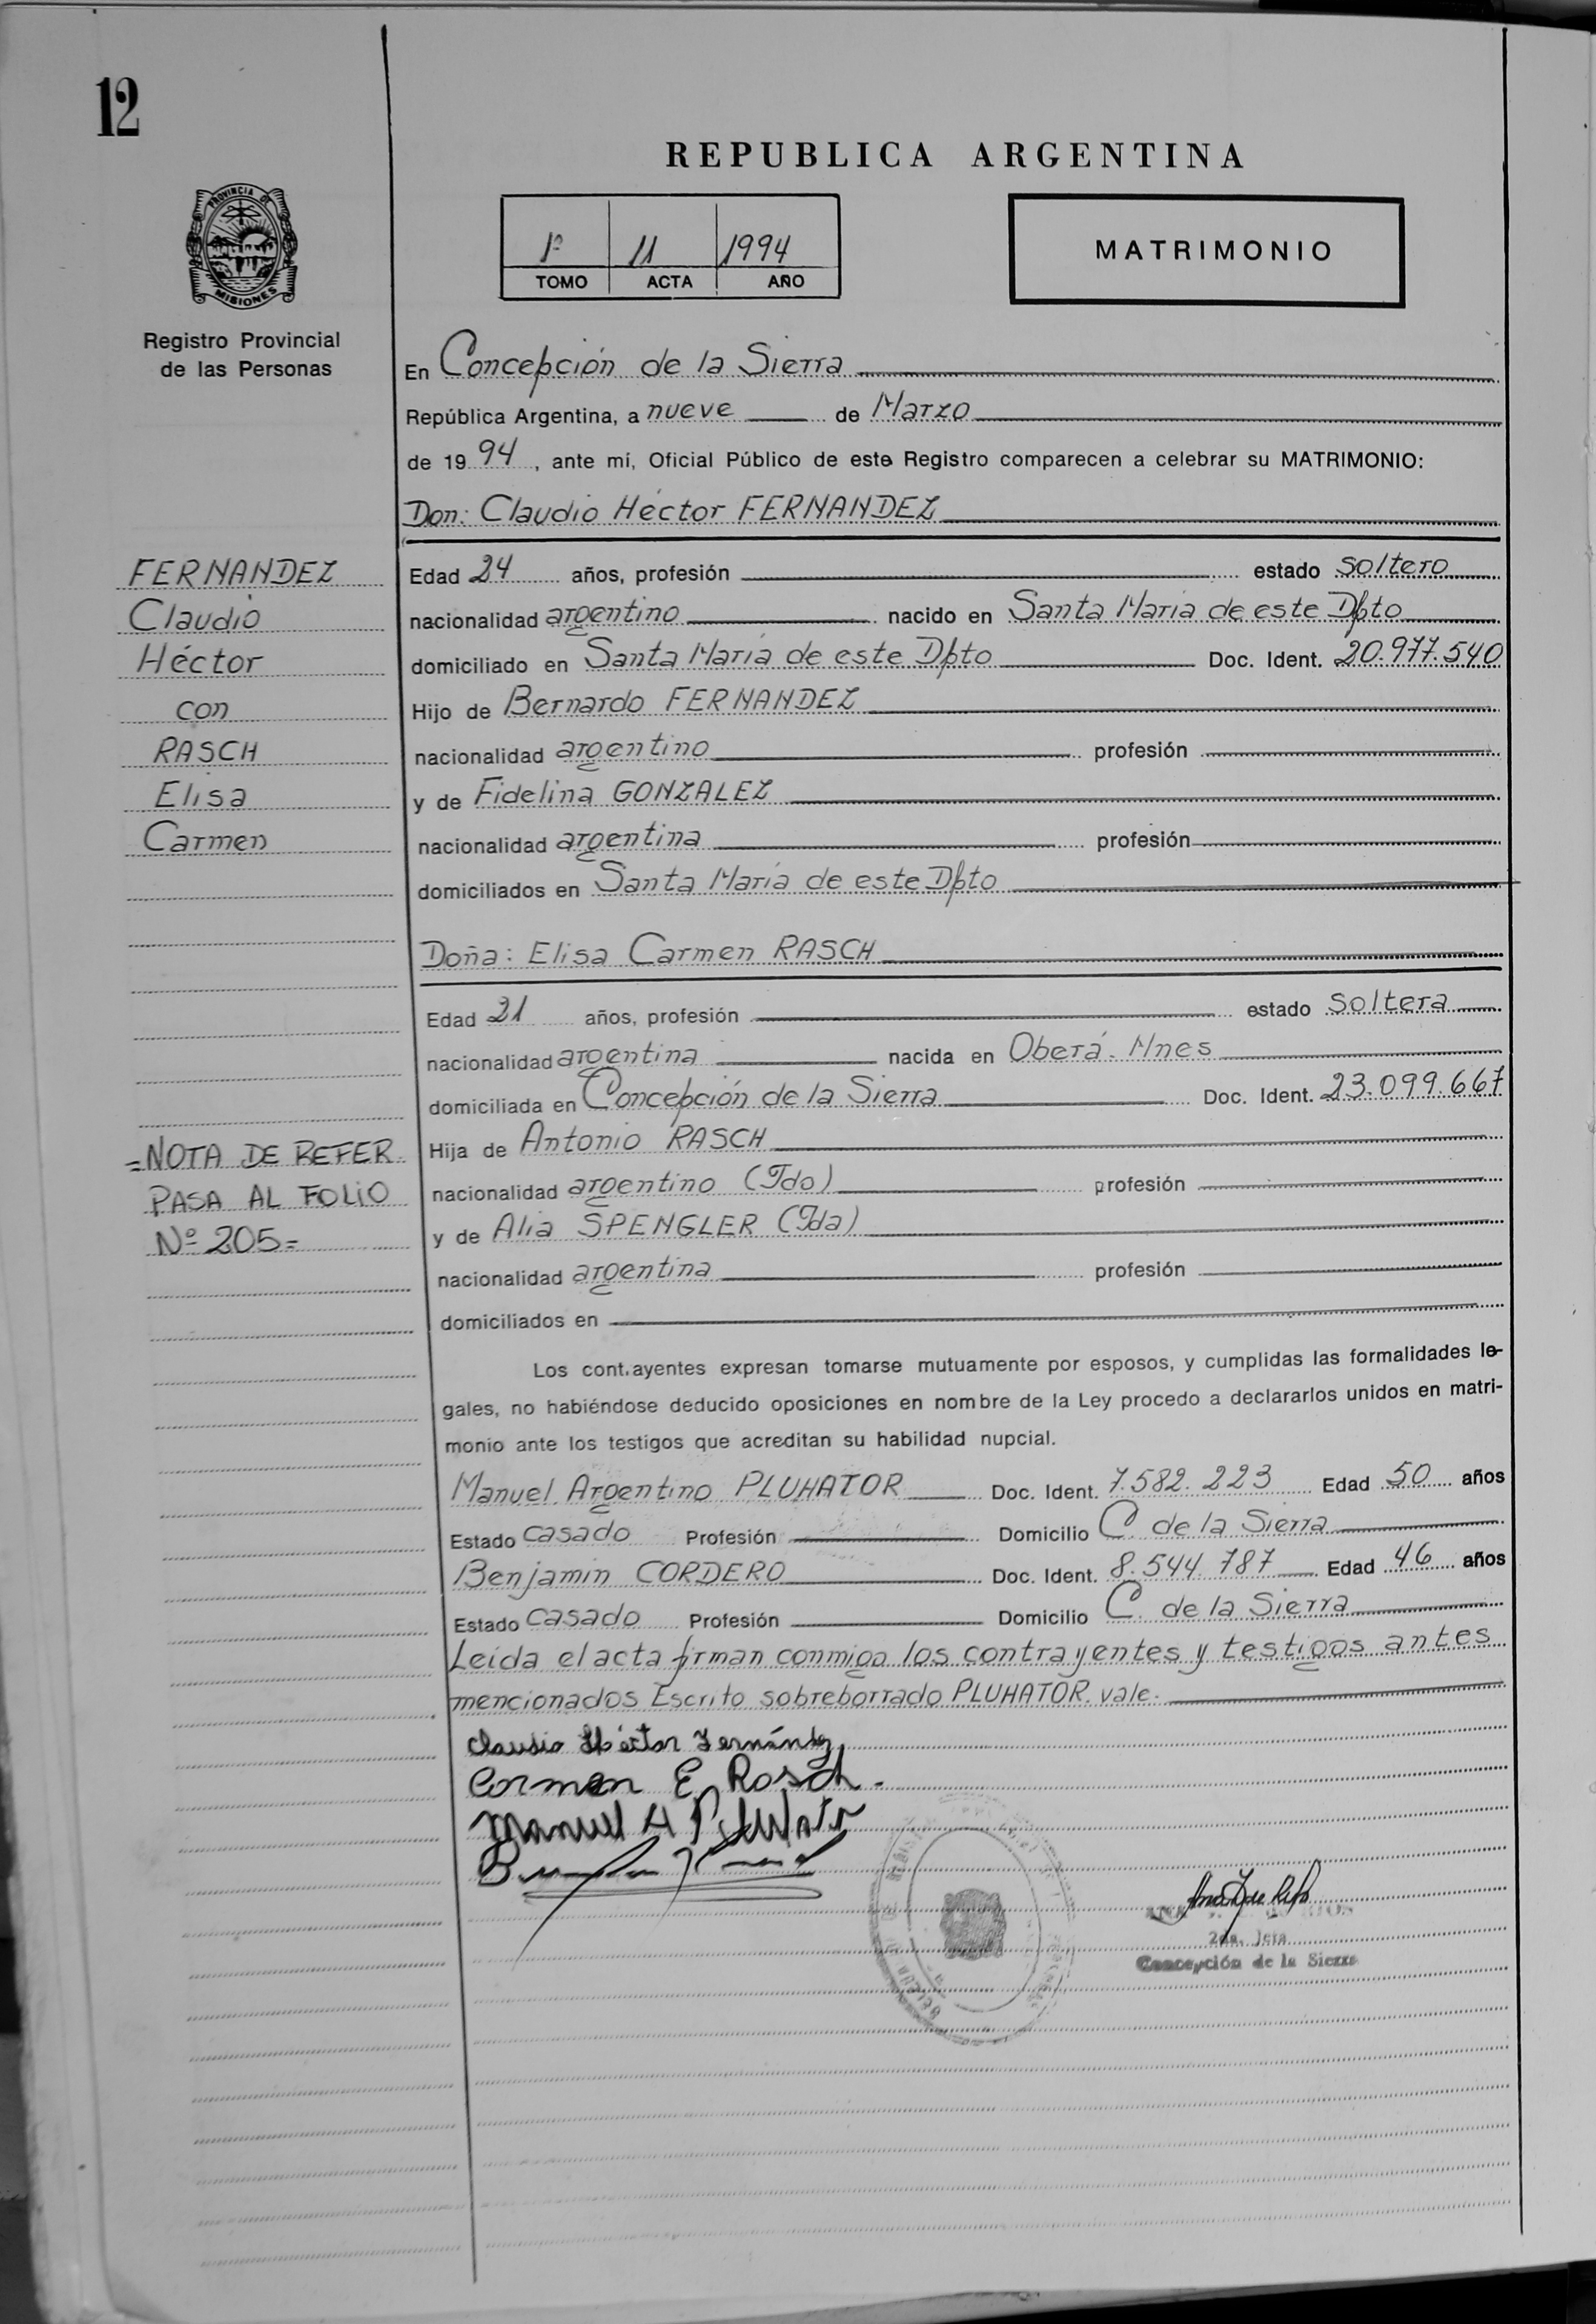 12
REPUBLICA ARGENTINA
PROVINCIA DE
MISIONES
Registro Provincial
de las Personas
1º 11 1994
TOMO ACTA AÑO
MATRIMONIO
En Concepción de la Sierra
República Argentina, a nueve de Marzo
de 19 94, ante mí, Oficial Público de este Registro comparecen a celebrar su MATRIMONIO:
Don: Claudio Héctor FERNANDEZ
FERNANDEZ
Claudio
Héctor
con
RASCH
Elisa
Carmen
Edad 24 años, profesión estado soltero
nacionalidad argentino nacido en Santa María de este Dpto
domiciliado en Santa María de este Dpto Doc. Ident. 20.977.540
Hijo de Bernardo FERNANDEZ
nacionalidad argentino profesión
y de Fidelina GONZALEZ
nacionalidad argentina profesión
domiciliados en Santa María de este Dpto
Doña: Elisa Carmen RASCH
Edad 21 años, profesión estado soltera
nacionalidad argentina nacida en Oberá. Mnes
domiciliada en Concepción de la Sierra Doc. Ident. 23.099.667
Hija de Antonio RASCH
nacionalidad argentino (Fdo) profesión
y de Alia SPENGLER (Fda)
nacionalidad argentina profesión
domiciliados en
=NOTA DE REFER
PASA AL FOLIO
Nº 205=
Los cont.ayentes expresan tomarse mutuamente por esposos, y cumplidas las formalidades le-
gales, no habiéndose deducido oposiciones en nombre de la Ley procedo a declararlos unidos en matri-
monio ante los testigos que acreditan su habilidad nupcial.
Manuel Argentino PLUHATOR Doc. Ident. 7.582.223 Edad 50 años
Estado casado Profesión Domicilio C. de la Sierra
Benjamín CORDERO Doc. Ident. 8.544.787 Edad 46 años
Estado casado Profesión Domicilio C. de la Sierra
Leída el acta firman conmigo los contrayentes y testigos antes
mencionados Escrito sobreborrado PLUHATOR. vale.
Claudio Héctor Fernández
Carmen E Rasch.
Manuel A Pluhator
2da. Jefa
Concepción de la Sierra